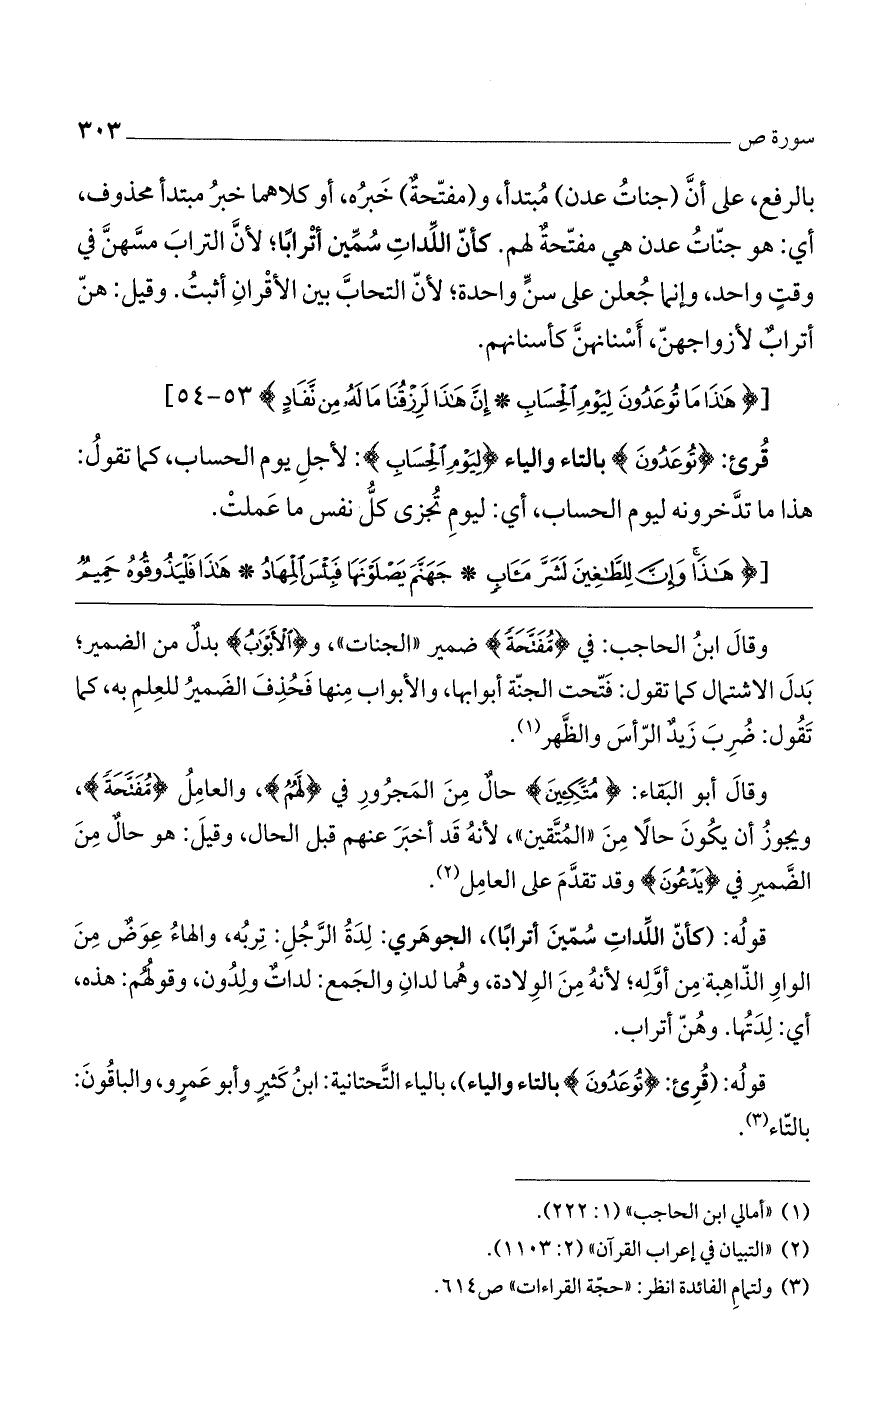 سورة ص ٣٠٣
بالرفع، على أنَّ (جناتُ عدن) مُبتدأ، و(مفتّحةٌ) خَبرُه، أو كلاهما خبرُ مبتدأ محذوف،
أي: هو جنّاتُ عدن هي مفتّحةٌ لهم. كأنّ اللِّداتِ سُمِّين أتْرابًا؛ لأنَّ الترابَ مسَّهنَّ في
وقتٍ واحد، وإنما جُعلن على سنٍّ واحدة؛ لأنّ التحابَّ بين الأقْرانِ أثبتُ. وقيل: هنّ
أترابٌ لأزواجهنّ، أَسْنانهنَّ كأسنانهم.
[﴿ هَـٰذَا مَا تُوعَدُونَ لِيَوْمِ ٱلْحِسَابِ * إِنَّ هَـٰذَا لَرِزْقُنَا مَا لَهُۥ مِن نَّفَادٍ ﴾ ٥٣-٥٤]
قُرئ: ﴿تُوعَدُونَ ﴾ بالتاء والياء ﴿لِيَوْمِ ٱلْحِسَابِ ﴾: لأجلِ يوم الحساب، كما تقولُ:
هذا ما تدَّخرونه ليوم الحساب، أي: ليومِ تُجزى كلُّ نفس ما عَملتْ.
[﴿ هَـٰذَا ۚ وَإِنَّ لِلطَّـٰغِينَ لَشَرَّ مَـَٔابٍ * جَهَنَّمَ يَصْلَوْنَهَا فَبِئْسَ ٱلْمِهَادُ * هَـٰذَا فَلْيَذُوقُوهُ حَمِيمٌ
وقالَ ابنُ الحاجب: في ﴿مُّفَتَّحَةً ﴾ ضمير «الجنات»، و﴿ٱلْأَبْوَٰبُ﴾ بدلٌ من الضمير؛
بَدلَ الاشتمال كما تقول: فَتّحت الجنّة أبوابها، والأبواب مِنها فَحُذِفَ الضَميرُ للعِلمِ به، كما
تَقُول: ضُرِبَ زَيدٌ الرّأسَ والظَّهر(١).
وقالَ أبو البَقاء: ﴿ مُتَّكِـِٔينَ﴾ حالٌ مِنَ المَجرُورِ في ﴿لَّهُمُ﴾، والعامِلُ ﴿مُّفَتَّحَةً﴾،
ويجوزُ أن يكُونَ حالًا مِنَ «المُتَّقين»، لأنهُ قَد أخبَرَ عنهم قبل الحال، وقيلَ: هو حالٌ مِنَ
الضَّميرِ في ﴿يَدْعُونَ﴾ وقد تقدَّمَ على العامِل(٢).
قولُه: (كأنّ اللِّداتِ سُمّينَ أترابًا)، الجوهَري: لِدَةُ الرَّجُلِ: تِربُه، والهاءُ عِوَضٌ مِنَ
الواوِ الذّاهِبة مِن أوَّلِه؛ لأنهُ مِنَ الوِلادة، وهُما لدانِ والجَمع: لداتٌ ولِدُون، وقولُهُم: هذه،
أي: لِدَتُها. وهُنّ أتراب.
قولُه: (قُرِئ: ﴿تُوعَدُونَ ﴾ بالتاء والياء)، بالياء التَّحتانية: ابنُ كَثيرٍ وأبو عَمرٍو، والباقُونَ:
بالتّاء(٣).
(١) «أمالي ابن الحاجب» (١: ٢٢٢).
(٢) «التبيان في إعراب القرآن» (٢: ١١٠٣).
(٣) ولتمامِ الفائدة انظر: «حجّة القراءات» ص٦١٤.